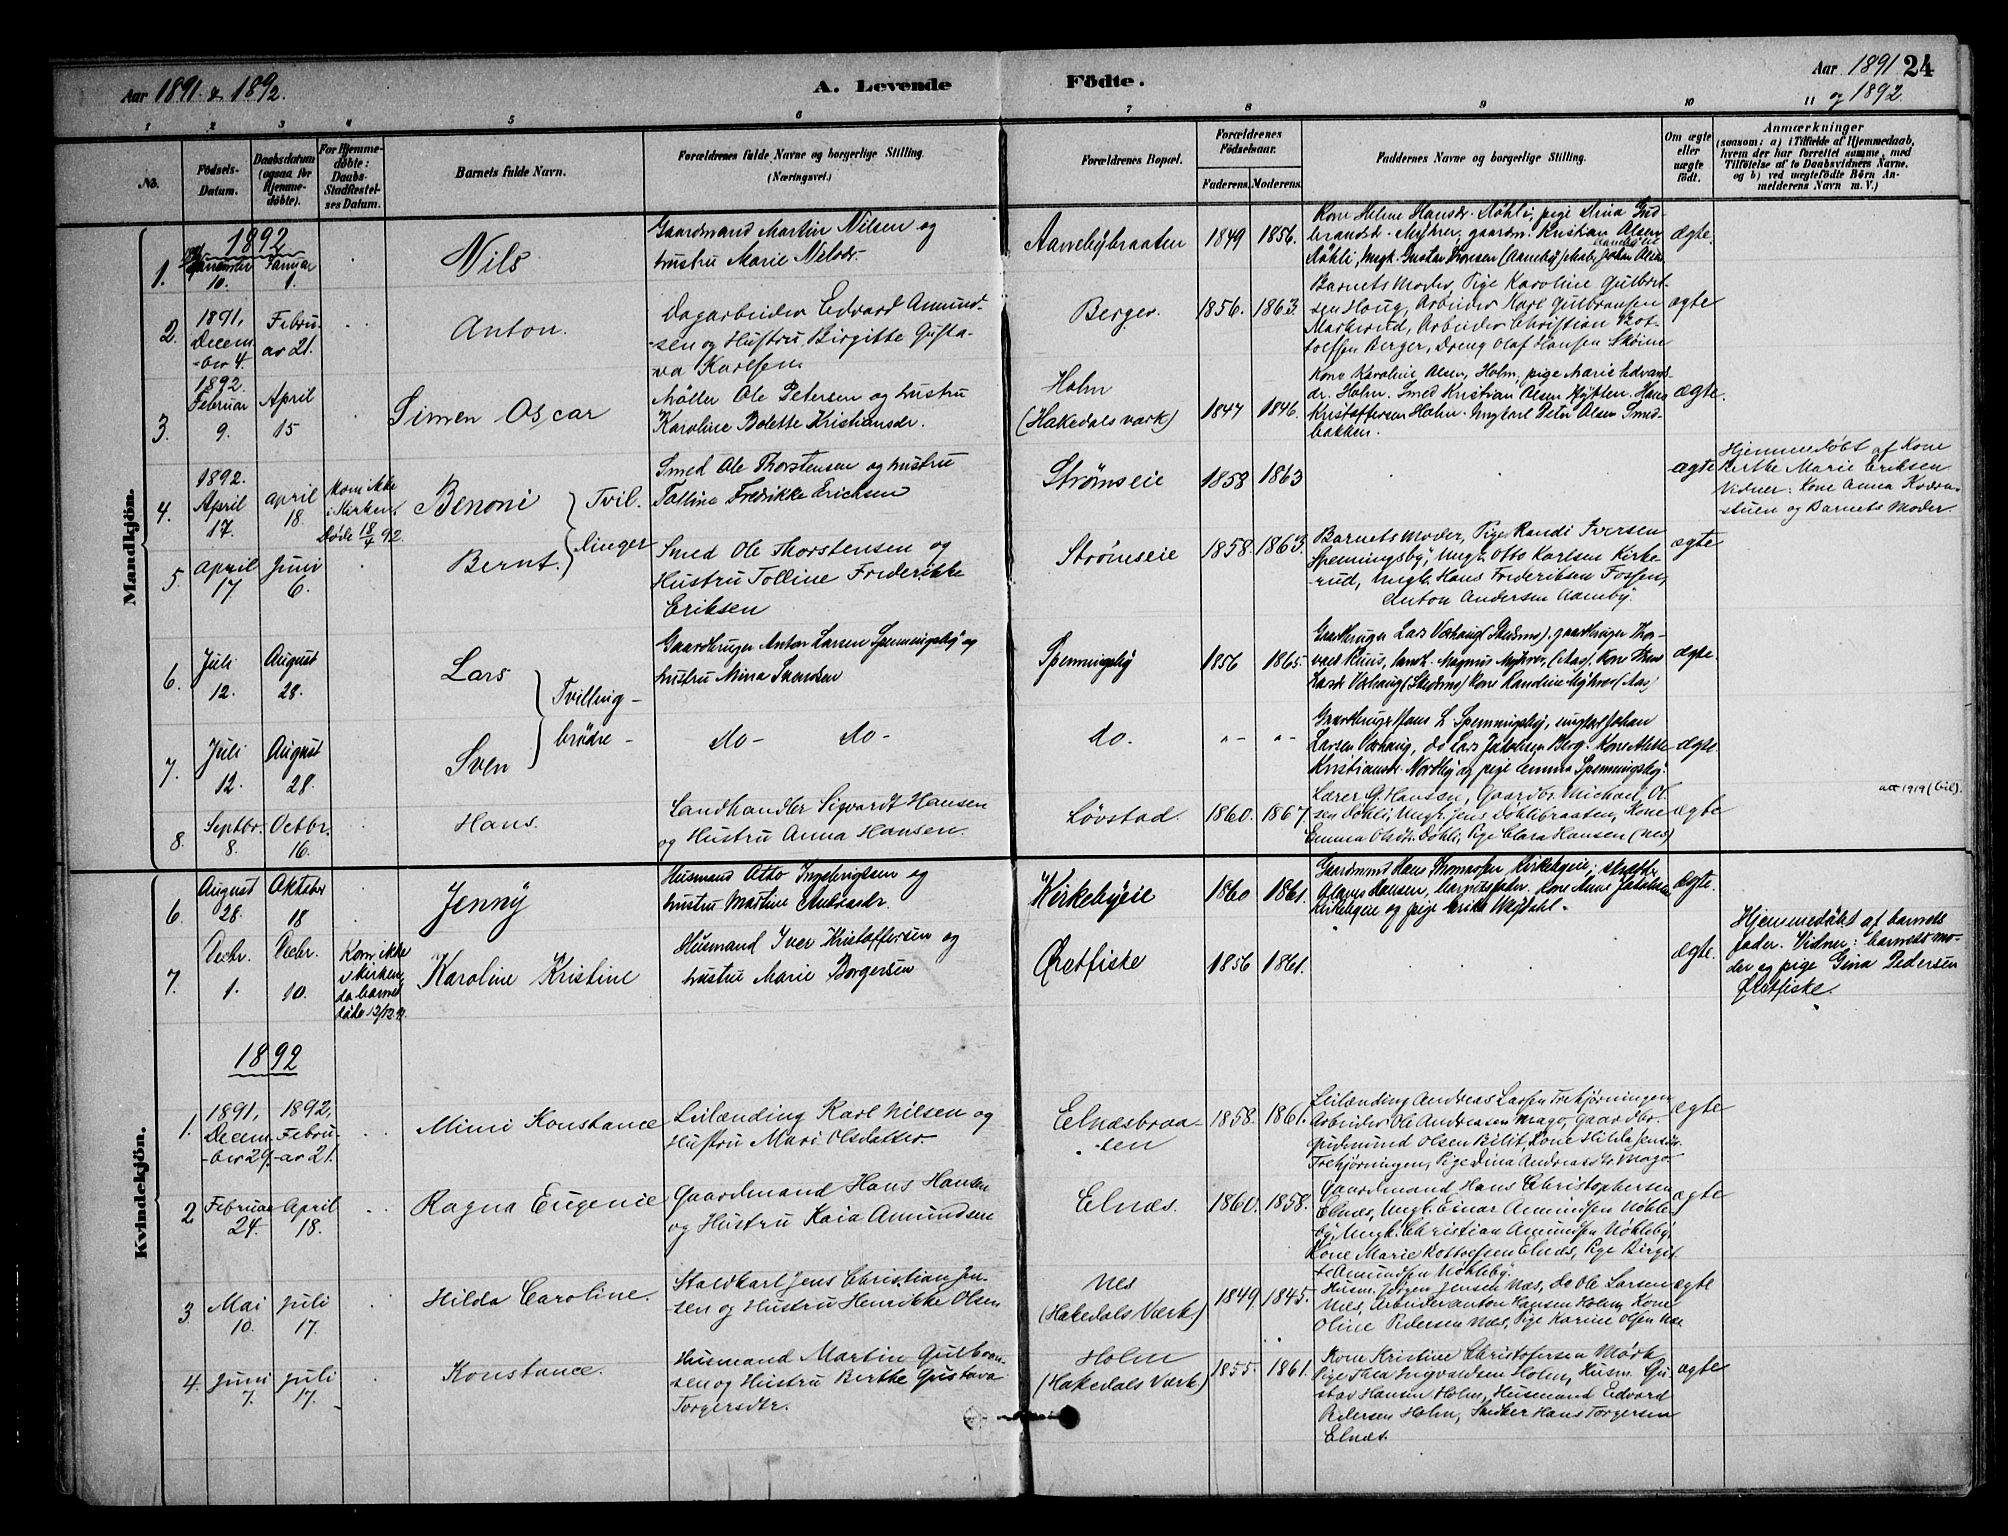 Aar 1891 & 1892.
A. Levende
Födte.
Aar 1891 24
og 1892.
1 2 3 4 5 6 7 8 9 10 11
No.
Födsels-
Datum.
Daabsdatum
(ogsaa for
Hjemme-
döbte).
For Hjemme-
döbte:
Daabs-
Stadfæstel-
ses Datum.
Barnets fulde Navn.
Forældrenes fulde Navne og borgerlige Stilling.
(Næringsvei.)
Forældrenes Bopæl.
Forældrenes
Födselsaar.
Faderens. Moderens.
Faddernes Navne og borgerlige Stilling.
Om ægte
eller
uægte
født.
Anmærkninger
(saasom: a) i Tilfælde af Hjemmedaab,
hvem der har forrettet samme, med
Tilföielse af to Daabsvidners Navne,
og b) ved uægtefödte Börn An-
melderens Navn m. V.)
Mandkjön.
1892
1. 10. Januar 1. Nils
Gaardmand Martin Nilsen og
hustru Marie Nilsdr.
Aanebybraaten 1849 1856.
Kone Helene Hansdr. Døhli, pige Dina Gud-
brandsd. Myhrer, gaardm. Kristian Olsen
Døhli, Ungk. Gustav Thoresen (Aaneby)
ægte.
2. 1891, Decem-
ber 4. Febru-
ar 21. Anton.
Dagarbeider Edvard Amund-
sen og Hustru Birgitte Gusta-
va Karlsen.
Berger. 1856. 1863.
Barnets Moder, Pige Karoline Gulbrand-
sen Haug, Arbeider Karl Gulbransen
Markerud, Arbeider Christian Bot-
tolfsen Berger, Dreng Olaf Hansen Skøien
ægte
3. 1892. Februar 9. April 15 Simen Oscar
Møller Ole Petersen og hustru
Karoline Bolette Kristiansdr.
Holm
(Hakedals værk) 1847 1846.
Kone Karoline Olsen, Holm, pige Marie Edvards-
dr. Holm. Smed Kristian Olsen Hytten. Hans
Kristoffersen Holm. Ungkarl Peter Olsen Smed-
bakken.
ægte.
4. 1892. April 17. april 18. Kom ikke
i Kirken.
Døde 18/4 92. Benoni
Tvil-
linger
Smed Ole Thorstensen og hustru
Tolline Fredrikke Erichsen
Strømseie 1858 1863
ægte
Hjemmedøbt af Kone
Berthe Marie Eriksen
Vidner: Kone Anna Kværn-
stuen og Barnets Moder.
5. april 17 Juni 6. Bernt.
Smed Ole Thorstensen og
Hustru Tolline Frederikke
Eriksen
Strømseie 1858. 1863.
Barnets Moder, Pige Randi Iversen
Spenningsby, Ungk. Otto Karlsen Kirke-
rud, Ungk. Hans Frederiksen Fossen,
Anton Andersen Aaneby.
ægte
6. Juli 12. August 28. Lars
Tvilling-
brødre -
Gaardbruger Anton Larsen Spenningsby og
hustru Mina Svendsen
Spenningsby 1856 1865.
Gaardbruger Lars Værhaug (Skedsmo), gaardbruger Thor-
vald Ruus, landh. Magnus Myhrer, (Aas). Kone
Værhaug (Skedsmo) Kone Randine Myhrer (Aas)
ægte.
7. Juli 12. August 28. Sven
do - do -
do. " - " -
Gaardbruger Hans L Spenningsby, ungkarl Johan
Larsen Værhaug, do Lars Jakobsen Berg. Kone
Kristiansdr. Nordby og pige Emma Spenningsby.
ægte
8. Septbr. 8. Octbr. 16. Hans.
Landhandler Sigvardt Hansen
og Hustru Anna Hansen.
Løvstad. 1860. 1867.
Lærer G. Hanssen, Gaardbr. Michael Ol-
sen Døhli, Ungk. Jens Døhlibraaten, Kone
Emma Olsdr. Døhli, Pige Clara Hansen (nes)
ægte
att 1919
Kvindekjön.
6. August 28. Oktober 18 Jenny
Husmand Otto Ingebrigtsen og
hustru Martine Andreasdr.
Kirkebyeie 1860 1861.
Gaardmand Hans Thomasen Kirkebyeie,
Hansen, barnets fader. Kone Anne Jakobsen
Kirkebyeie og pige
ægte.
7. Decbr. 1. Decbr. 10. Kom ikke
i Kirken,
da barnet
døde 12/12 91. Karoline Kristine
Husmand Iver Kristoffersen og
hustru Marie Borgersen
Øretfiske 1856 1861.
ægte.
Hjemmedøbt af barnets
fader. Vidner: barnets mo-
der og pige Gina Pedersen
Øretfiske.
1892
1. 1891, Decem-
ber 29. 1892, Febru-
ar 21. Mimi Konstance
Leilænding Karl Nilsen og
Hustru Mari Olsdatter
Elnæsbraa-
ten 1858. 1861.
Leilænding Andreas Larsen Trehjørningen
Arbeider Ole Andreasen Mago, Gaardbr.
Gudmund Olsen Bilit, Kone Hilda Jensdr.
Trehjørningen, Pige Dina Andreasdtr. Mago
ægte
2 Februar 24. April 18. Ragna Eugenie
Gaardmand Hans Hansen
og Hustru Kaia Amundsen
Elnæs. 1860. 1858.
Gaardmand Hans Christophersen
Elnæs, Ungk. Einar Amundsen Nøkle-
by, Ungk. Christian Amundsen Nøkleby,
Kone Marie Bottolfsen Elnæs, Pige Birgit-
te Amundsen Nøkleby.
ægte
3 Mai 10. Juli 17. Hilda Caroline.
Staldkarl Jens Christian Jen-
sen og Hustru Henrikke Olsen
Nes
(Hakedals Værk) 1849. 1845.
Husm. Jørgen Jensen Næs, do Ole Larsen
Næs, Arbeider Anton Hansen Holm, Kone
Oline Pedersen Næs, Pige Karine Olsen Næs
ægte
4. Juni 7. Juli 17. Konstance.
Husmand Martin Gulbran-
sen og Hustru Berthe Gustava
Torgersdtr.
Holm
(Hakedals Værk) 1855. 1861.
Kone Kristine Christofersen Mørk
Pige Thea Ingvaldsen Holm, Husm. Gu-
stav Hansen Holm, Husmand Edvard
Pedersen Holm, Snedker Hans Torgersen
Elnæs.
ægte